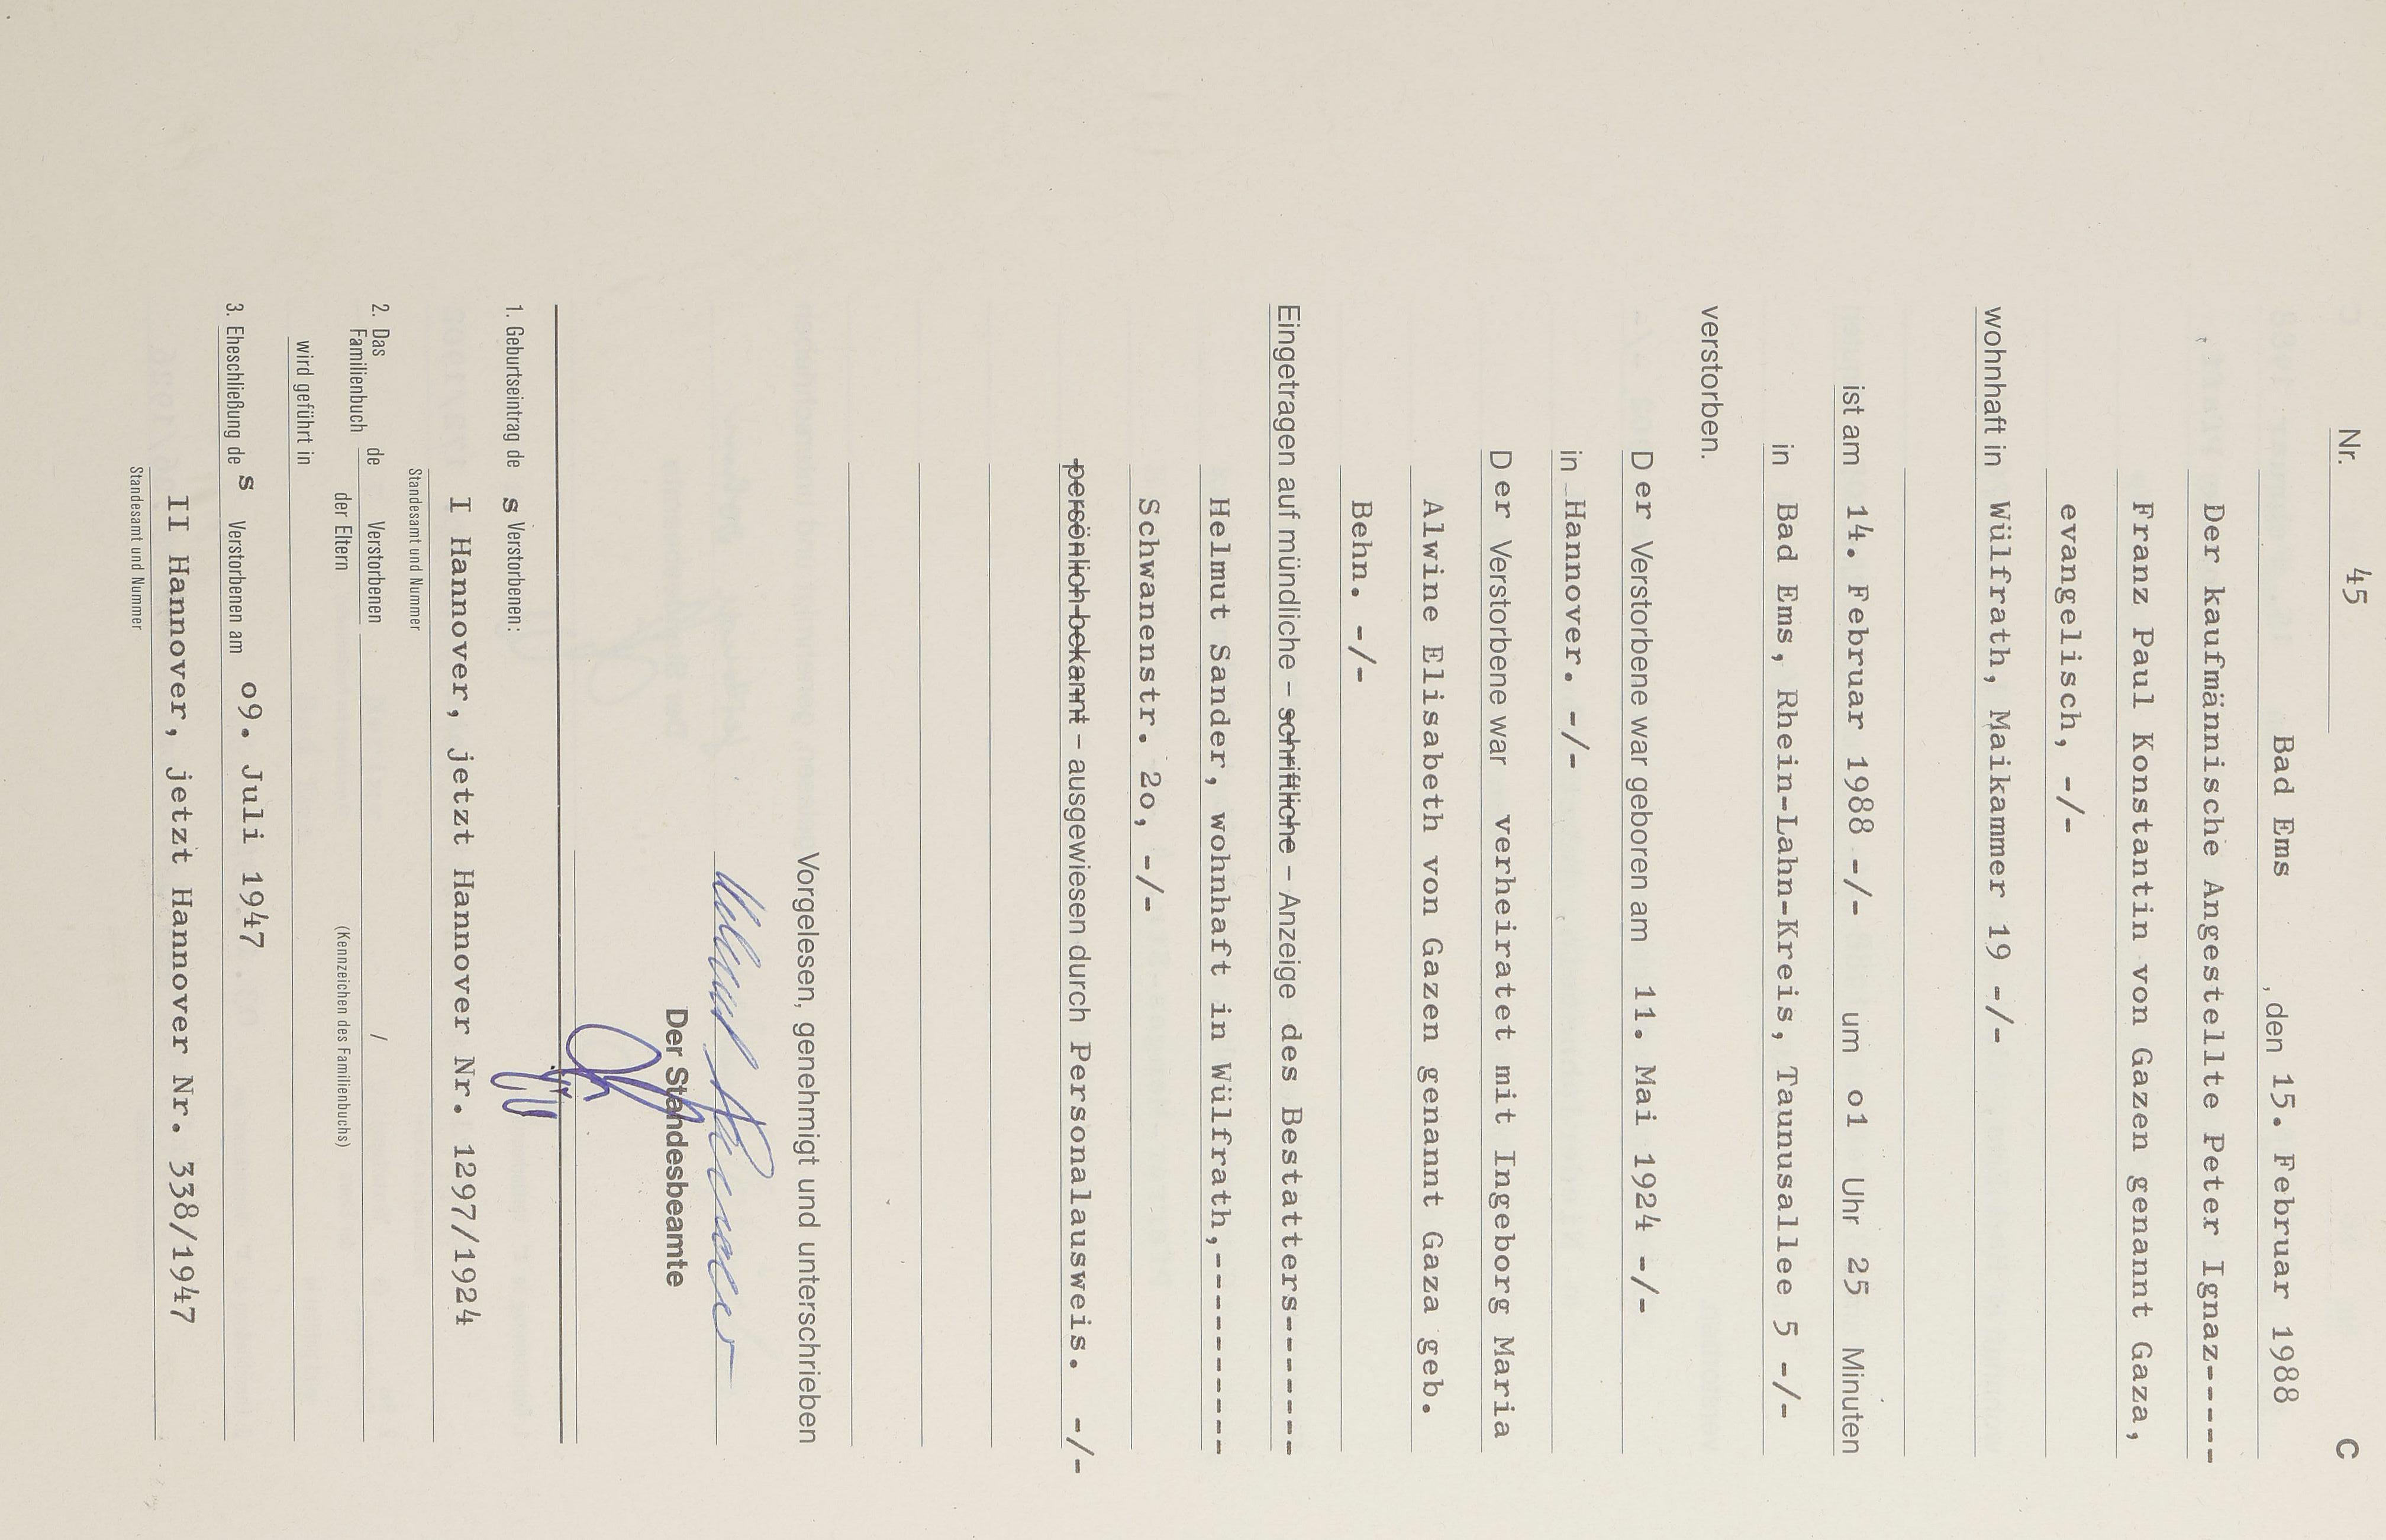 C
Nr. 45
Bad Ems, den 15. Februar 1988
Der kaufmännische Angestellte Peter Ignaz-----
Franz Paul Konstantin von Gazen genannt Gaza,
evangelisch, -/-
wohnhaft in Wülfrath, Maikammer 19 -/-
ist am 14. Februar 1988 -/- um o1 Uhr 25 Minuten
in Bad Ems, Rhein-Lahn-Kreis, Taunusallee 5 -/-
verstorben.
Der Verstorbene war geboren am 11. Mai 1924 -/-
in Hannover. -/-
Der Verstorbene war verheiratet mit Ingeborg Maria
Alwine Elisabeth von Gazen genannt Gaza geb.
Behn. -/-
Eingetragen auf mündliche – schriftliche – Anzeige des Bestatters-------
Helmut Sander, wohnhaft in Wülfrath,----------
Schwanenstr. 2o, -/-
persönlich bekannt – ausgewiesen durch Personalausweis. -/-
Vorgelesen, genehmigt und unterschrieben
Der Standesbeamte
1. Geburtseintrag des Verstorbenen:
I Hannover, jetzt Hannover Nr. 1297/1924
Standesamt und Nummer
2. Das Familienbuch de Verstorbenen /
der Eltern (Kennzeichen des Familienbuchs)
wird geführt in
3. Eheschließung des Verstorbenen am o9. Juli 1947
II Hannover, jetzt Hannover Nr. 338/1947
Standesamt und Nummer